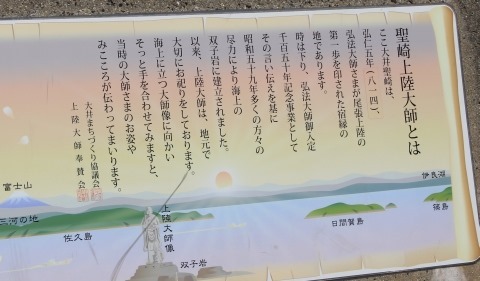 聖崎上陸大師とは
ここ大井聖崎は、
弘仁五年(八一四)、
弘法大師さまが尾張上陸の
第一歩を印された宿縁の
地であります。
時は下り、弘法大師御入定
千百五十年記念事業として
その言い伝えを基に
昭和五十九年多くの方々の
尽力により海上の
双子岩に建立されました。
以来、上陸大師は、地元で
大切にお祀りをしております。
海上に立つ大師像に向かい
そっと手を合わせてみますと、
当時の大師さまのお姿や
みこころが伝わってまいります。
大井まちづくり協議会
上陸大師奉賛会
富士山
三河の地
佐久島
上陸大師像
双子岩
日間賀島
伊良湖
篠島